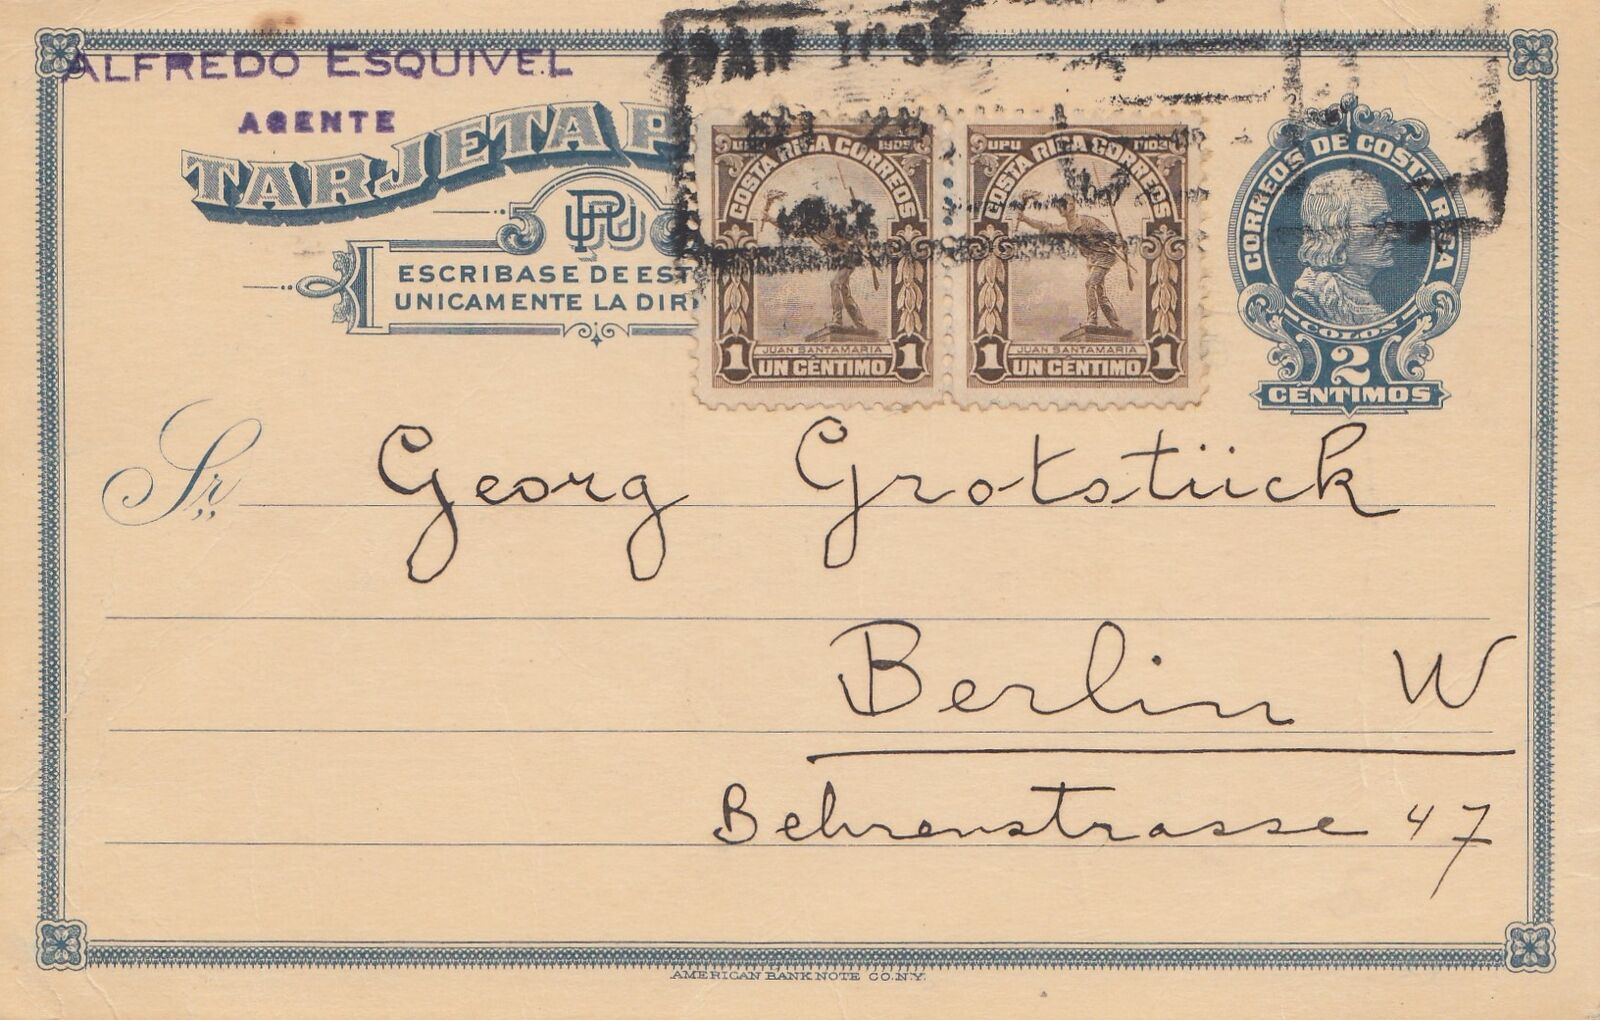 ALFREDO ESQUIVEL
AGENTE
SAN JOSE
TARJETA P
UPU
ESCRIBASE DE EST
UNICAMENTE LA DIR
UPU 1909
COSTA RICA CORREOS
JUAN SANTAMARIA
1 UN CÉNTIMO 1
UPU 1909
COSTA RICA CORREOS
JUAN SANTAMARIA
1 UN CÉNTIMO 1
CORREOS DE COSTA RICA
COLON
2
CÉNTIMOS
Sr. Georg Grotstück
Berlin W
Behrenstrasse 47
AMERICAN BANK NOTE CO. N.Y.